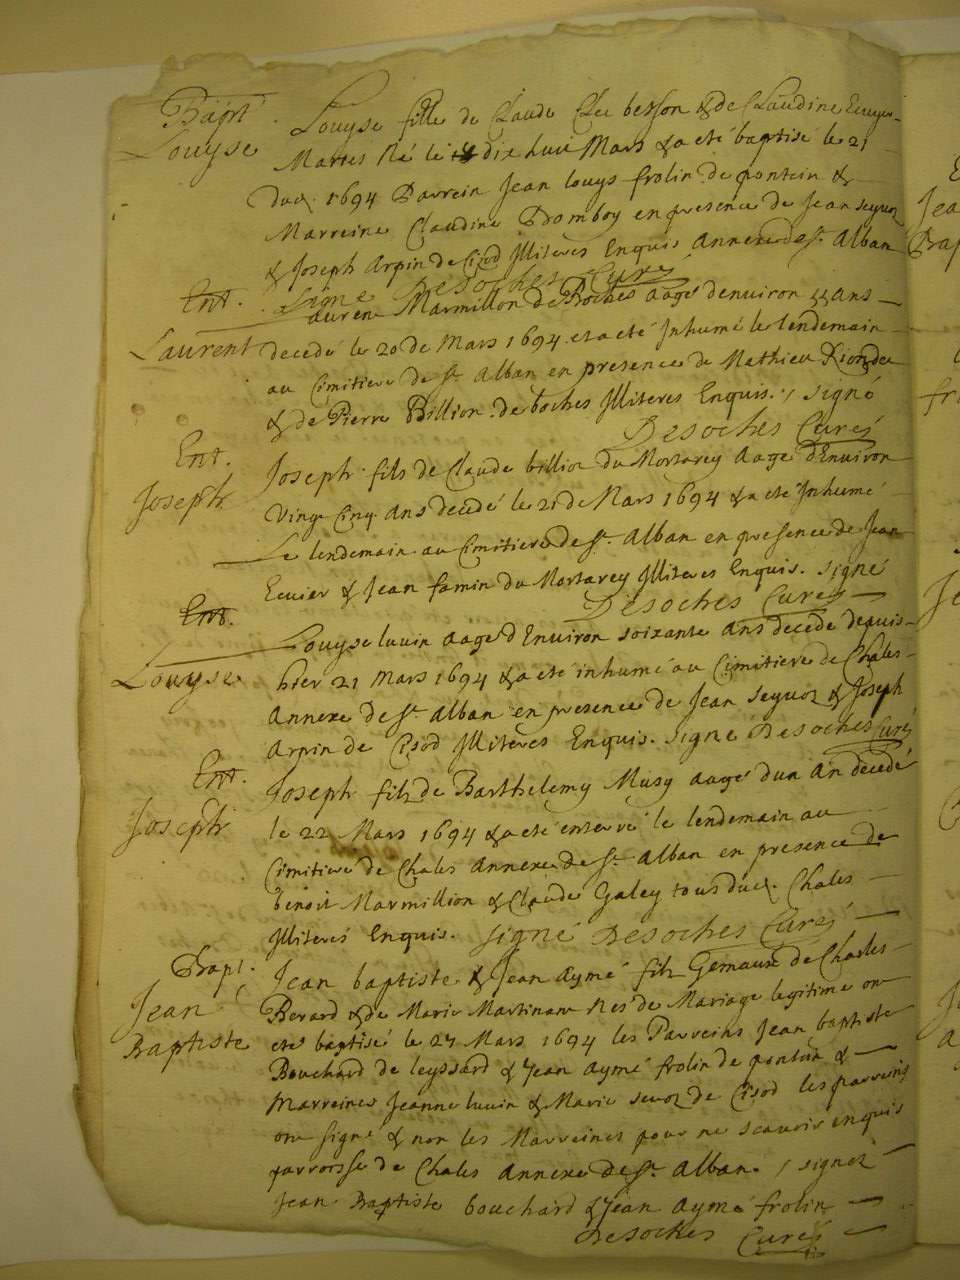 Bapt.
Louyse
Louyse fille de Claude besson & de Claudine
Martes Né le dix huit Mars & a eté baptisé le 21
dud. 1694 Parrein Jean louys frolin de pontein &
Marreine Claudine Domboy en presence de Jean seyuoz
& Joseph Arpin de Cisod Illiteres Enquis Annexe de St. Alban
Signe Desoches Curé
Ent.
Laurent
Laurent Marmillon de Boches aagé denuiron 55 ans
decedé le 20 de Mars 1694 et a eté Inhumé le lendemain
au Cimitiere de St. Alban en presence de Mathieu
& de Pierre Billion de boches Illiteres Enquis. / signé
Desoches Curé
Ent.
Joseph
Joseph fils de Claude billion du Mortarey aage dEnuiron
Vingt Cinq ans decedé le 21 de Mars 1694 & a eté Inhumé
Le lendemain au Cimitiere de St. Alban en presence de Jean
Ecuier & Jean famin du Mortarey Illiteres Enquis. signé
Desoches Curé
Ent.
Louyse
Louyse luuin aage dEnuiron soixante ans decede depuis
hier 21 Mars 1694 & a eté inhumé au Cimitiere de Chales
Annexe de St. Alban en presence de Jean seyuoz & Joseph
Arpin de Cisod Illiteres Enquis. signé Desoches Curé
Ent.
Joseph
Joseph filz de Barthelemy Musy aagé dun an decedé
le 22 Mars 1694 & a eté enterré le lendemain au
Cimitiere de Chales Annexe de St. Alban en presence de
benoit Marmillion & Claude Galey tous dud. Chales
Illiterés Enquis. signé Desoches Curé
Bapt.
Jean
Baptiste
Jean baptiste & Jean Aymé filz Gemaux de Charles
Berard & de Marie Martinant Nes de Mariage legitime ont
eté baptisé le 27 Mars 1694 les Parreins Jean baptiste
Bouchard de leyssard & Jean Aymé frolin de pontin &
Marreines Jeanne luuin & Marie seuoz de Cisod les parreins
ont signé & non les Marreines pour ne scauoir enquis
parroisse de Chales Annexe de St. Alban. / signez
Jean Baptiste bouchard & Jean Aymé frolin
Desoches Curé